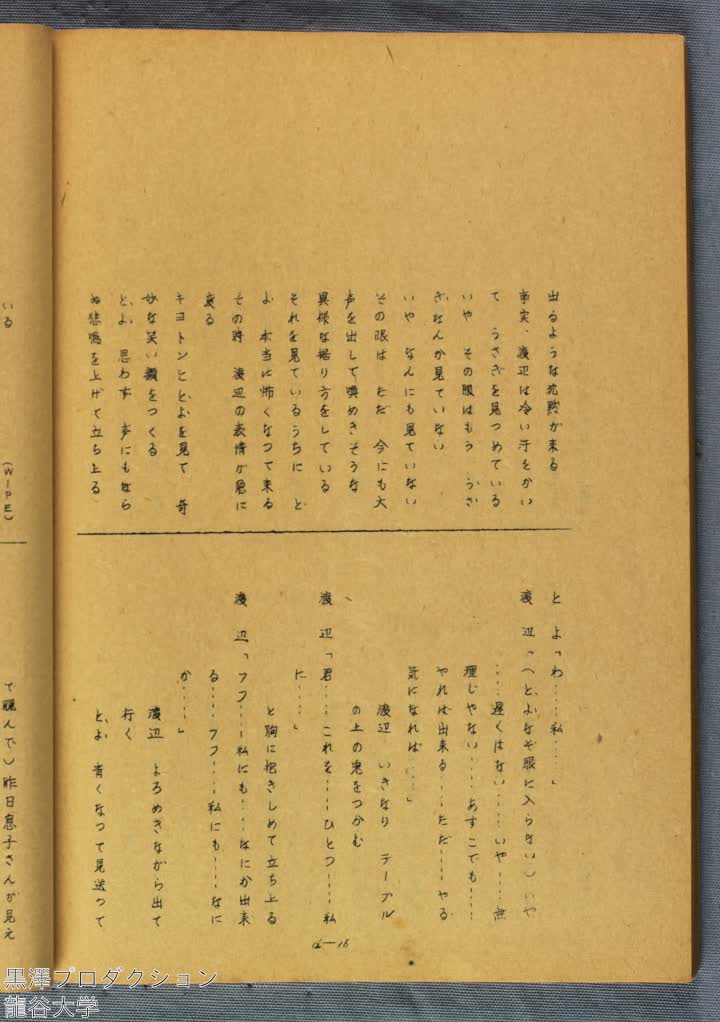 出るような沈黙が来る
事実、渡辺は冷い汗をかい
て うさぎを見つめている
いや その眼はもう うさ
ぎなんか見ていない
いや なんにも見ていない
その眼は ただ 今にも大
声を出して喚めきそうな
異様な据り方をしている
それを見ているうちに と
よ 本当に怖くなつて来る
その時 渡辺の表情が急に
変る
キヨトンととよを見て 奇
妙な笑い顔をつくる
とよ 思わず 声にもなら
ぬ悲鳴を上げて立ち上る
とよ「わ……私……」
渡辺「(とよなぞ眼に入らない)いや
……遅くはない……いや……無
理じやない……あすこでも……
やれば出来る……ただ……やる
気になれば……」
渡辺 いきなり テーブル
の上の兎をつかむ
渡辺「君……これを……ひとつ……私
に……」
と胸に抱きしめて立ち上る
渡辺「フフ……私にも……なにか出来
る……フフ……私にも……なに
か……」
渡辺 よろめきながら出て
行く
とよ 青くなつて見送つて
いる
(WIPE)
て睨んで)昨日息子さんが見え
d—16
黒澤プロダクション
龍谷大学